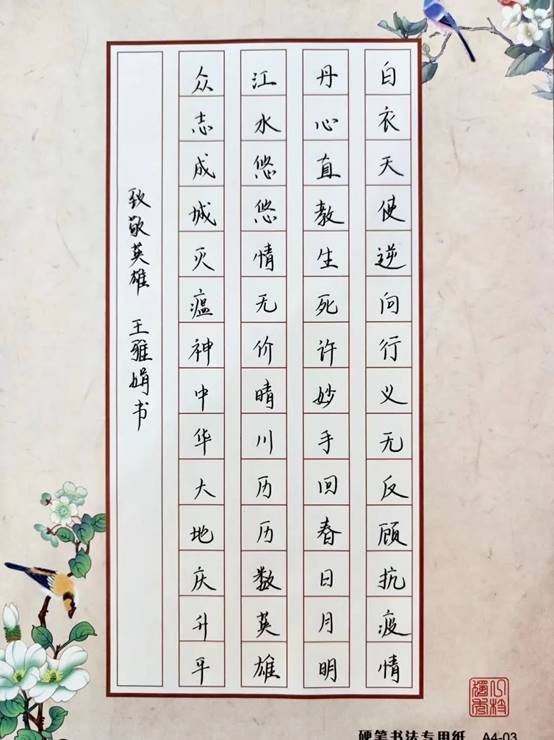 白衣天使逆向行义无反顾抗疫情
丹心直教生死许妙手回春日月明
江水悠悠情无价晴川历历数英雄
众志成城灭瘟神中华大地庆升平
致敬英雄 王雅娟书
硬笔书法专用纸 A4-03